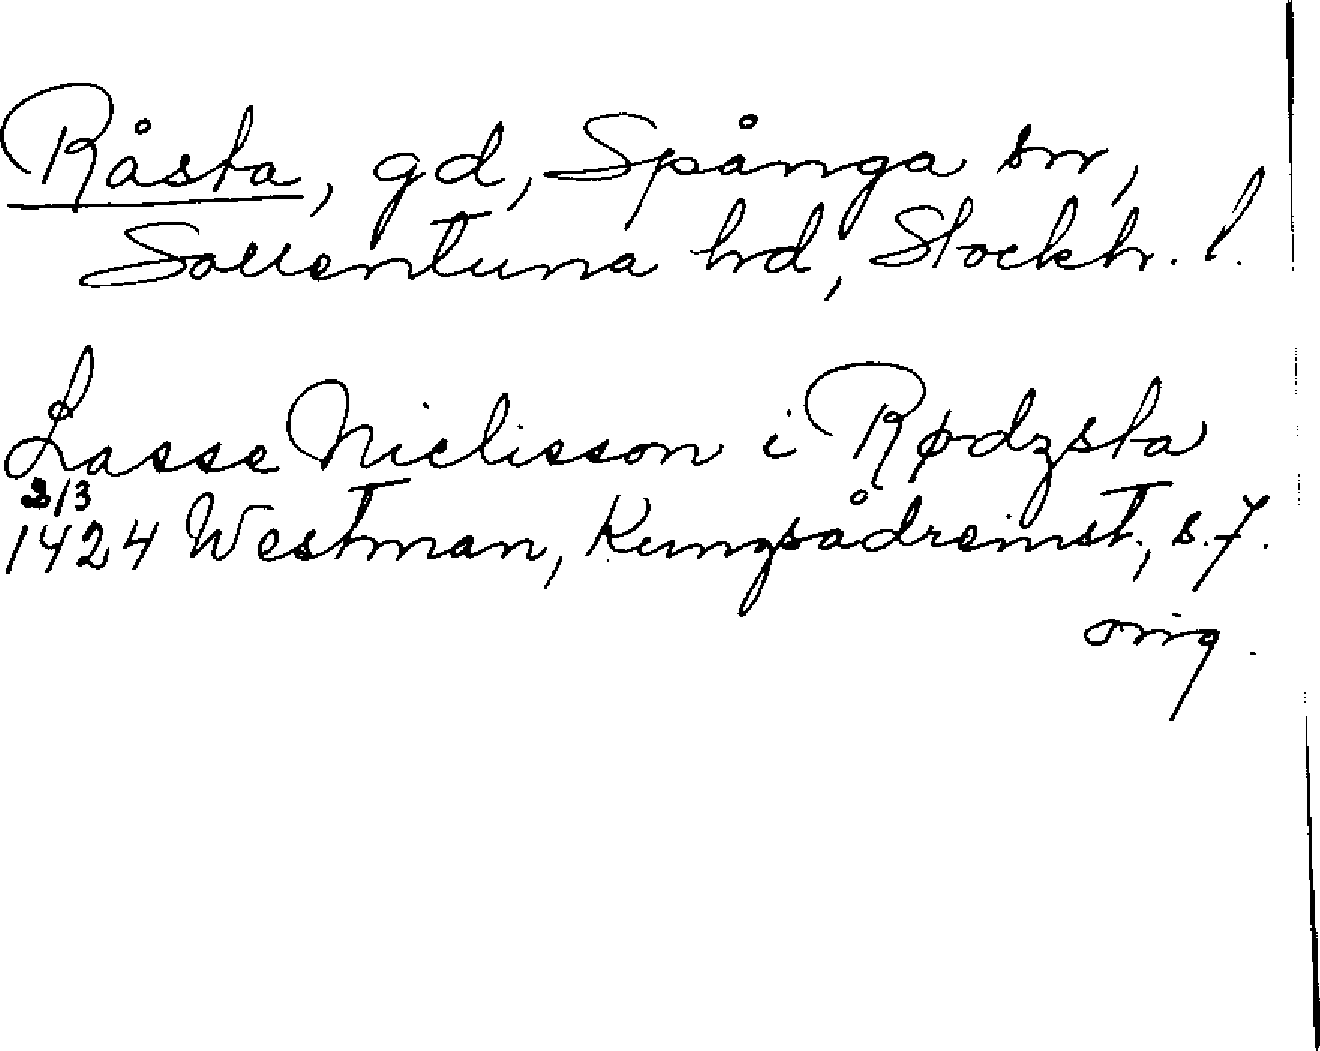 Råsta, gd, Spånga sn,
Sollentuna hd, Stockh. l.
Lasse Nielisson i Rødzsta
2/3
1424 Westman, Kungsådreinst., s. 7.
orig.